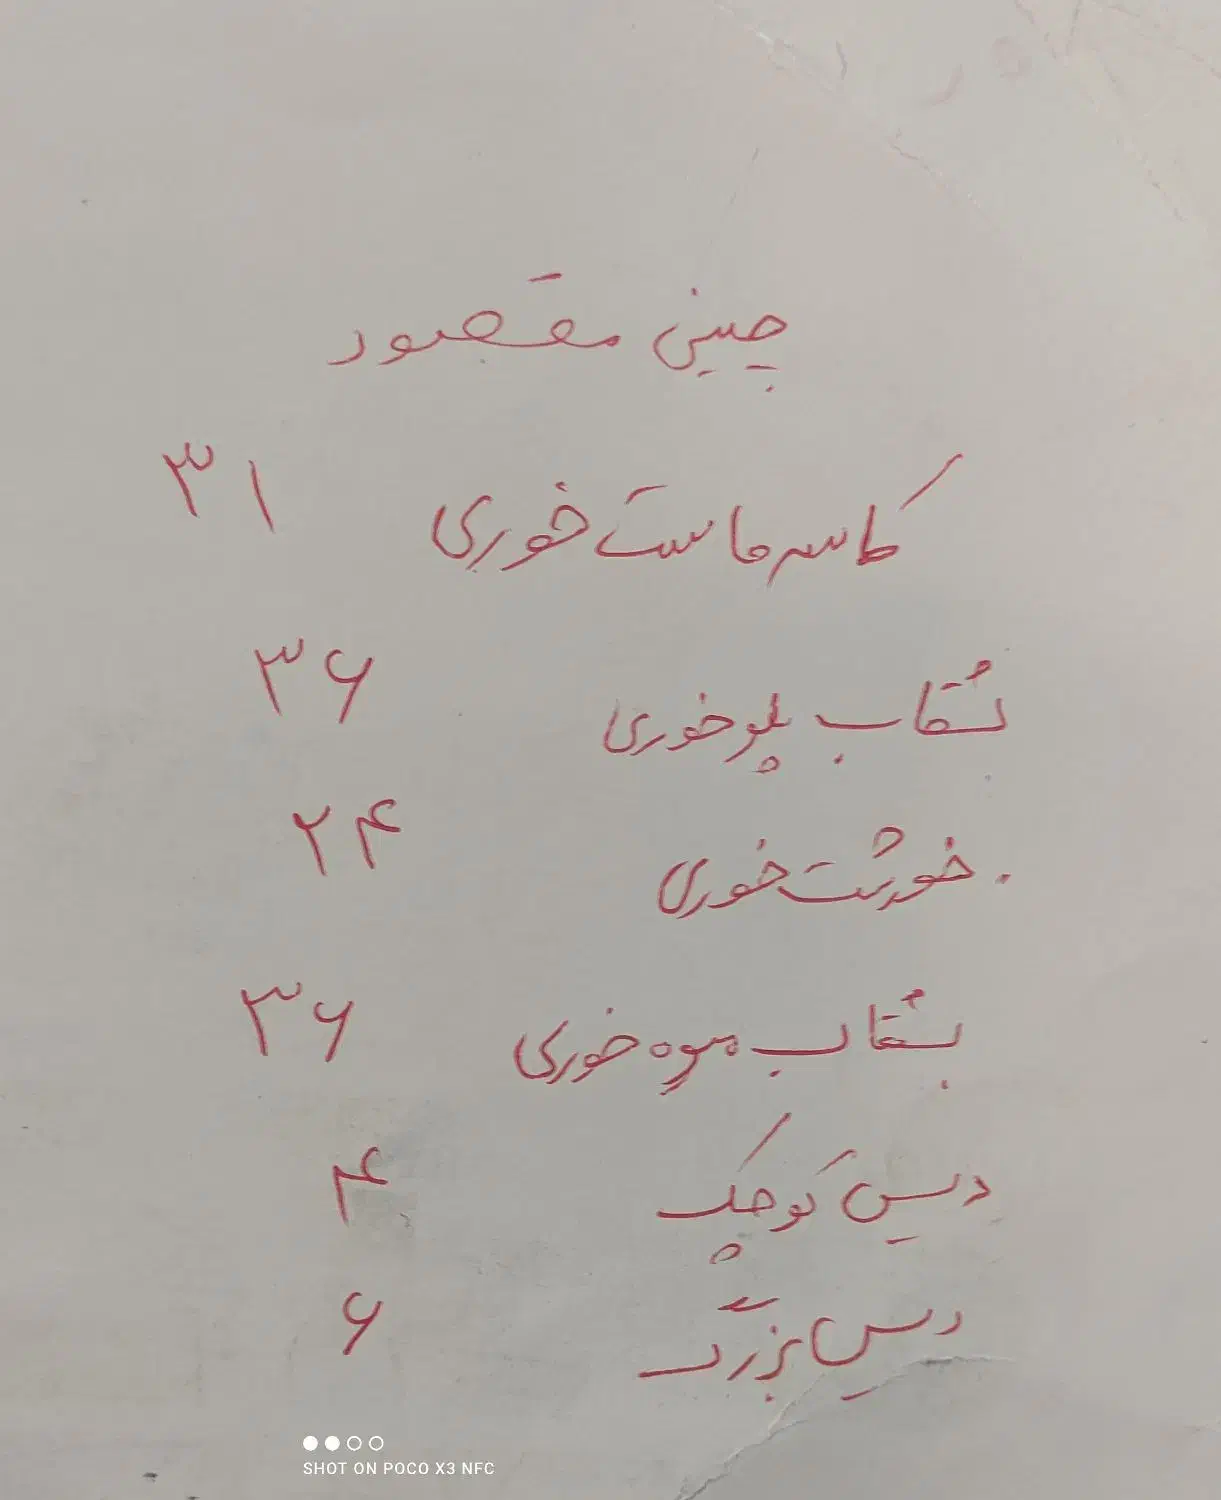 چینی مقصود
کاسه ماست خوری ۳۱
بشقاب پلو خوری ۳۶
خورشت خوری ۲۴
بشقاب میوه خوری ۳۶
دیس کوچک ۴
دیس بزرگ ۶
SHOT ON POCO X3 NFC